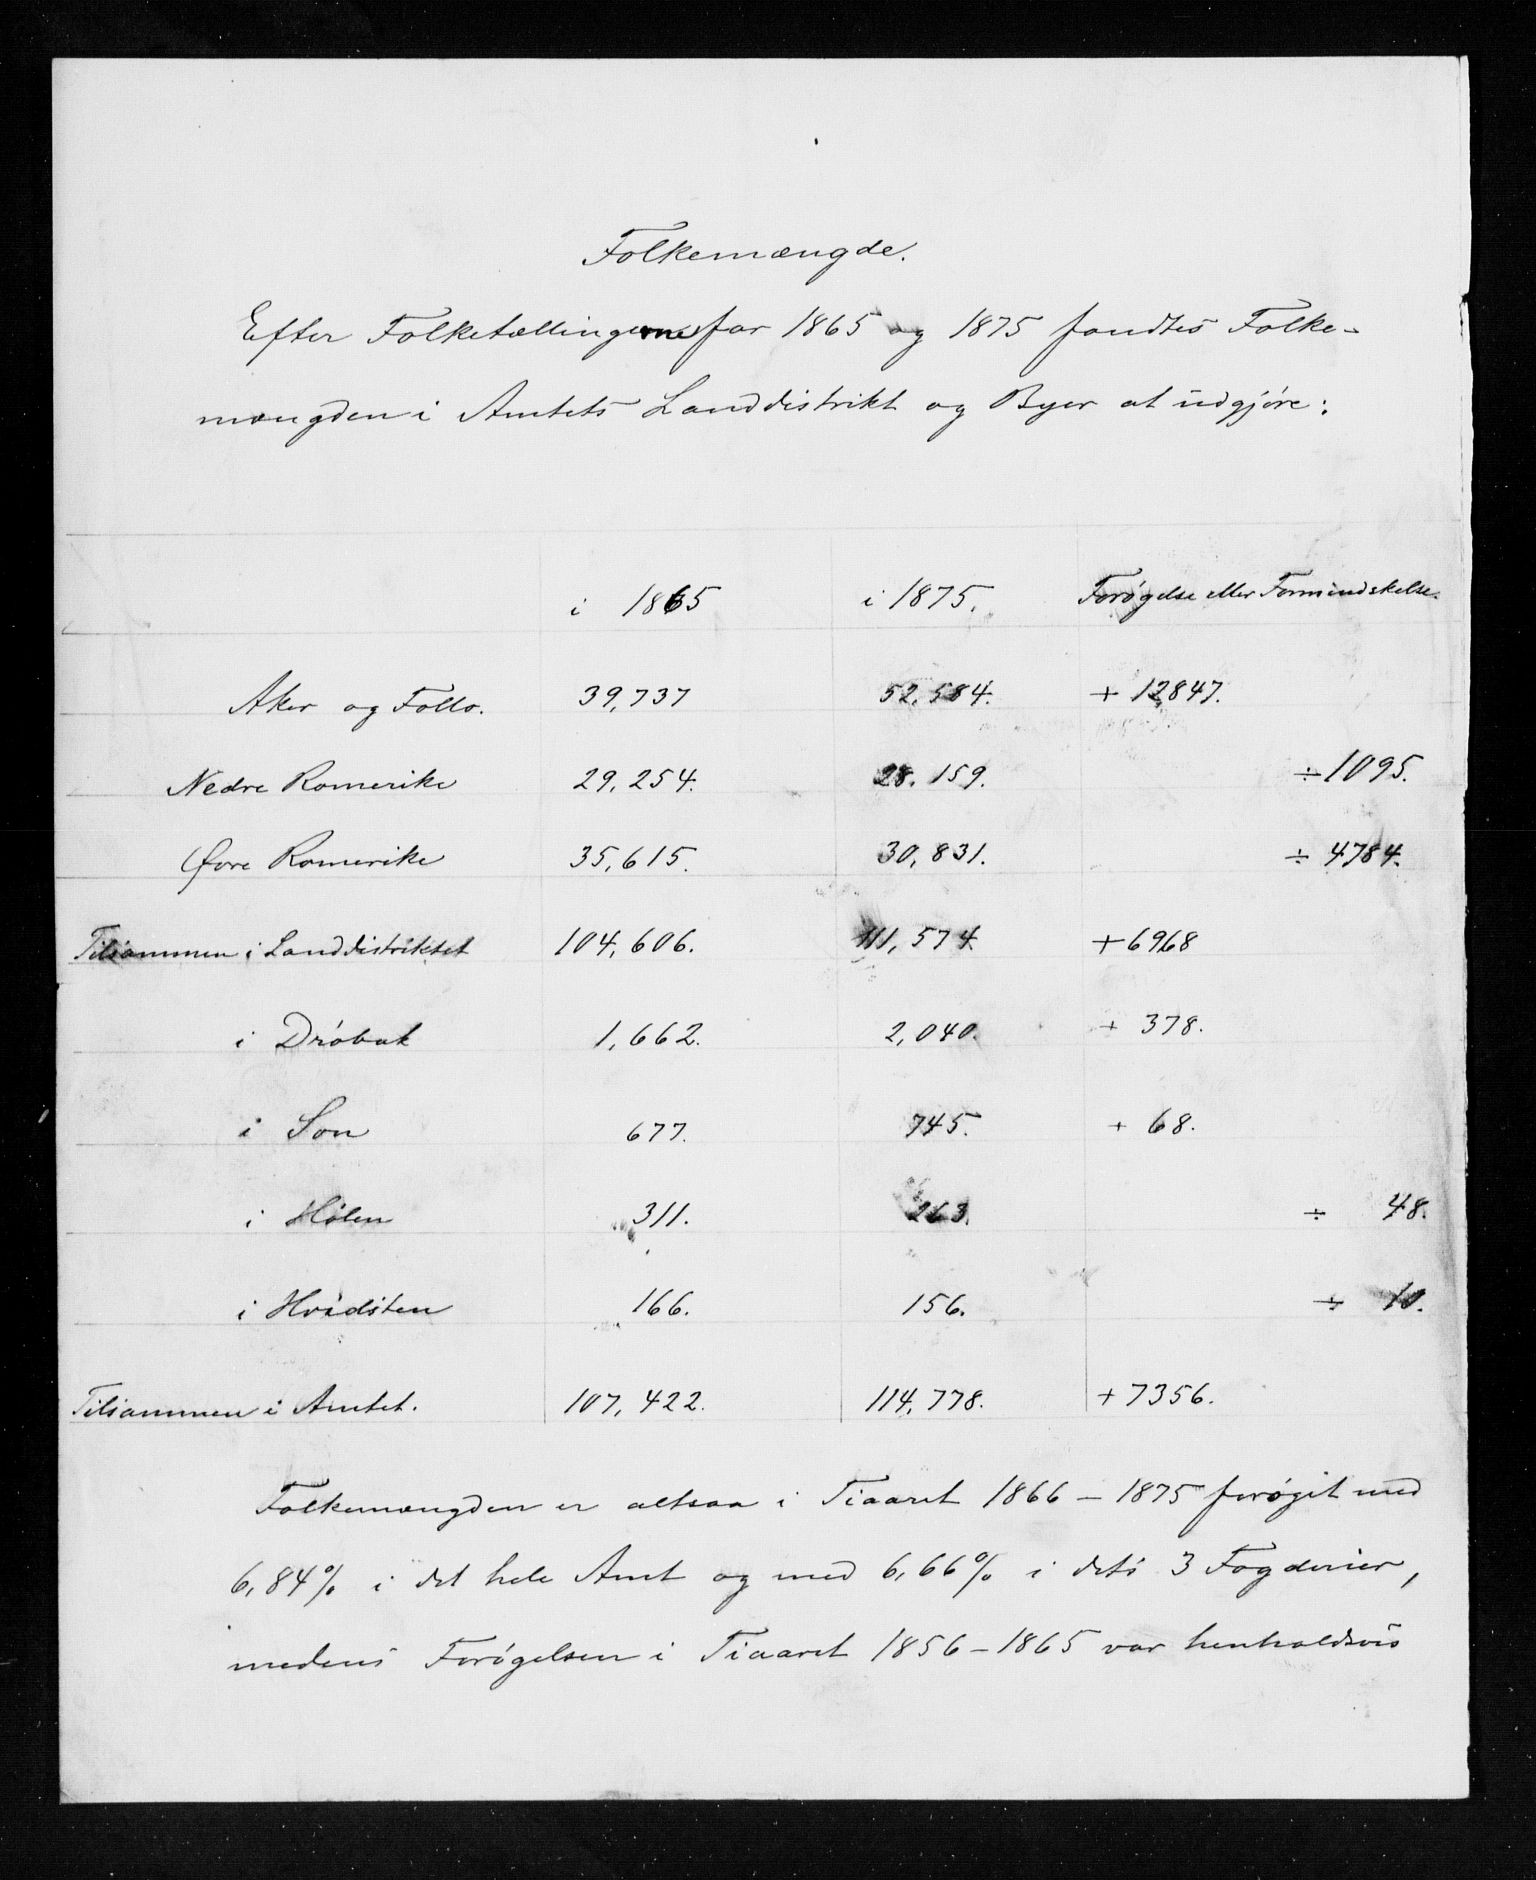 Folkemængde.
Efter Folketællingerne for 1865 og 1875 fandtes Folke-
mængden i Amtets Landdistrikt og Byer at udgjøre:
i 1865 i 1875. Forøgelse eller Formindskelse.
Aker og Follo. 39,737 52,584. + 12847.
Nedre Romerike 29,254. 28,159. ÷ 1095.
Øvre Romerike 35,615. 30,831. ÷ 4784.
Tilsammen i Landdistriktet 104,606. 111,574. + 6968
i Drøbak 1,662. 2,040. + 378.
i Son 677. 745. + 68.
i Hølen 311. 263. ÷ 48.
i Hvidsten 166. 156. ÷ 10.
Tilsammen i Amtet. 107,422. 114,778. + 7356.
Folkemængden er altsaa i Tiaaret 1866 – 1875 forøget med
6,84% i det hele Amt og med 6,66% i dets 3 Fogderier,
medens Forøgelsen i Tiaaret 1856 – 1865 var henholdsvis